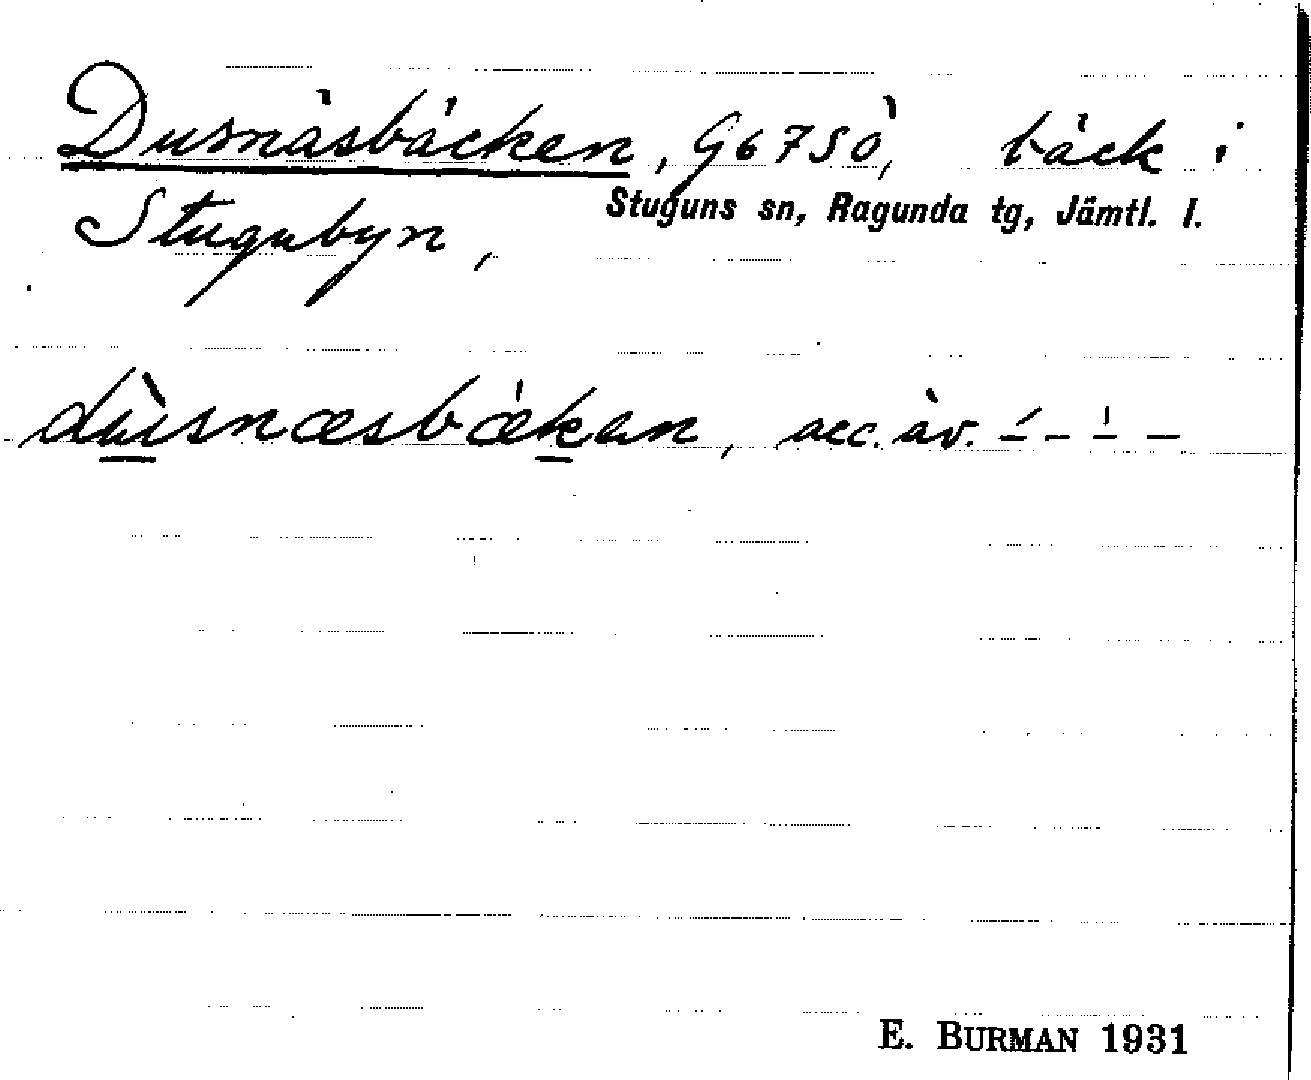 Dusnäsbäcken, G6 7SÖ, bäck i
Stugubyn, Stuguns sn, Ragunda tg, Jämtl. l.
dùsnæsbækan, acc. äv.
E. BURMAN 1931